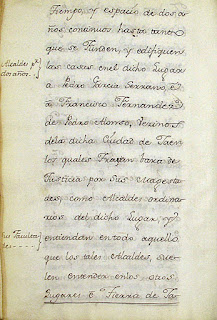 Tiempo, y espacio de dos a-
ños continuos hasta tanto
que se funden, y edifiquen
las casas en el dicho Lugar
Alcaldes pr.
dos años.
a Pedro Garcia Serrano, e
a Francisco Fernandez
de Pedro Alonso, Vecinos
de la dicha Ciudad de Jaen
los quales Traygan bara de
Justicia por Sus Magesta-
des, como Alcaldes ordina-
rios del dicho Lugar, y
entiendan en todo aquello
Sus faculta-
des
que los tales Alcaldes, sue-
len entender en los otros
Lugares é Tierra de Ja-